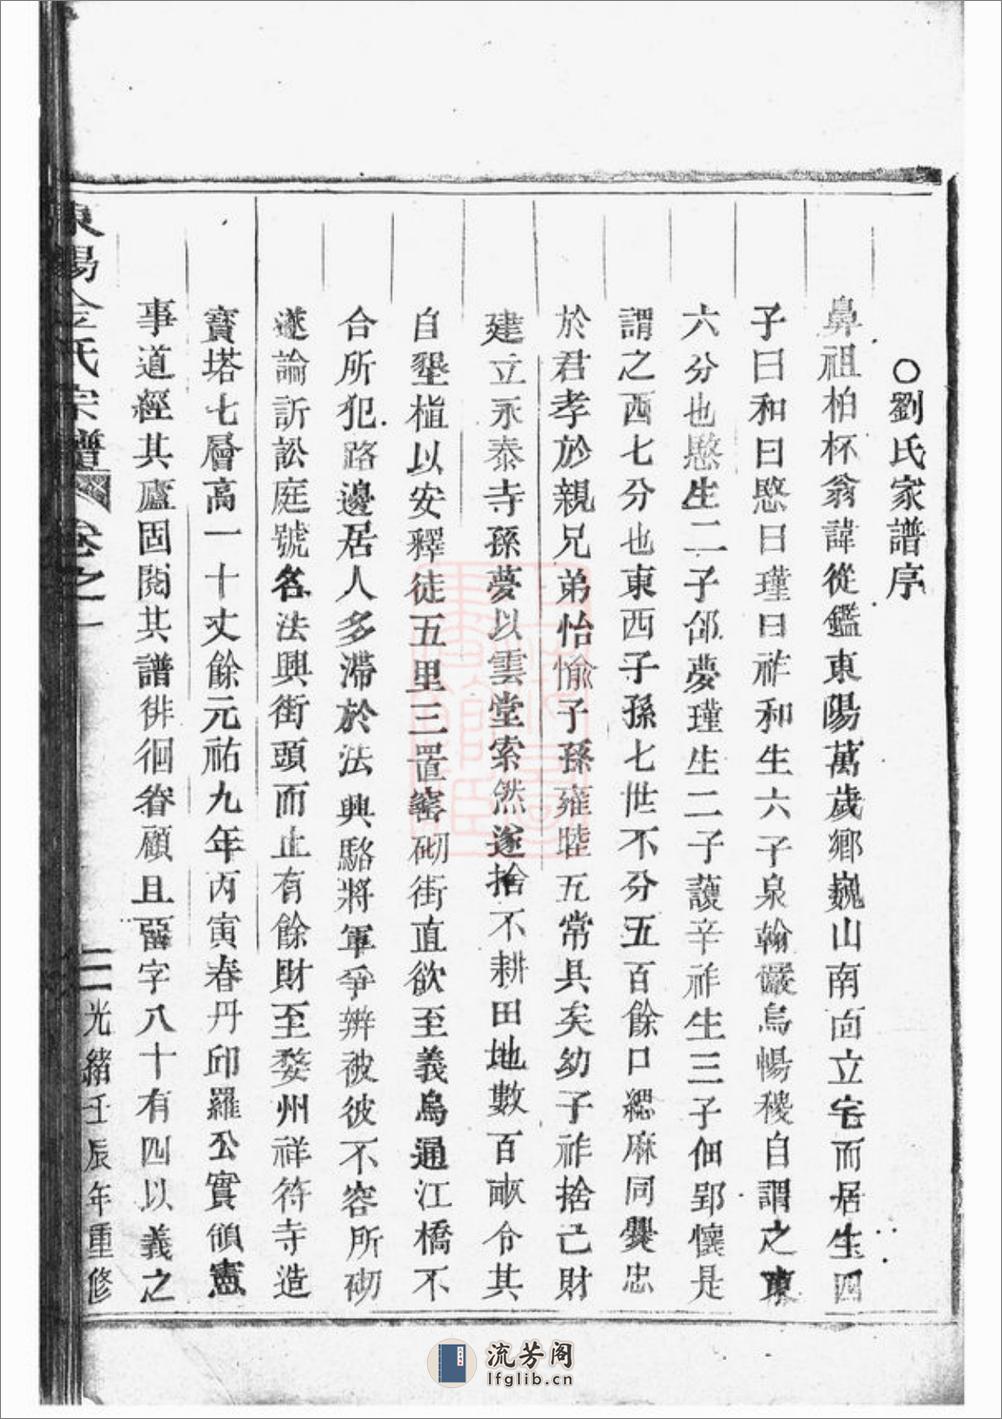 ○劉氏家譜序
鼻祖柏杯翁諱從鑑東陽萬歲鄉巍山南面立宅而居生四
子曰和曰愍曰瑾曰祚和生六子泉翰儼烏暢稷自謂之東
六分也愍生二子郃夢瑾生二子護辛祚生三子佃郢懷是
謂之西七分也東西子孫七世不分五百餘口緦麻同爨忠
於君孝於親兄弟怡愉子孫雍睦五常具矣幼子祚捨己財
建立永泰寺孫夢以雲堂索然遂捨不耕田地數百畝令其
自墾植以安釋徒五里三置窰砌街直欲至義烏通江橋不
合所犯路邊居人多滯於法興駱將軍爭辨被彼不容所砌
遂論訢訟庭號名法興街頭而止有餘財至婺州祥符寺造
寶塔七層高一十丈餘元祐九年丙寅春丹邱羅公實領憲
事道經其廬固閱其譜徘徊眷顧且畱字八十有四以義之
東陽金氏宗譜 卷之一 二 光緒壬辰年重修
流芳阁
lfglib.cn